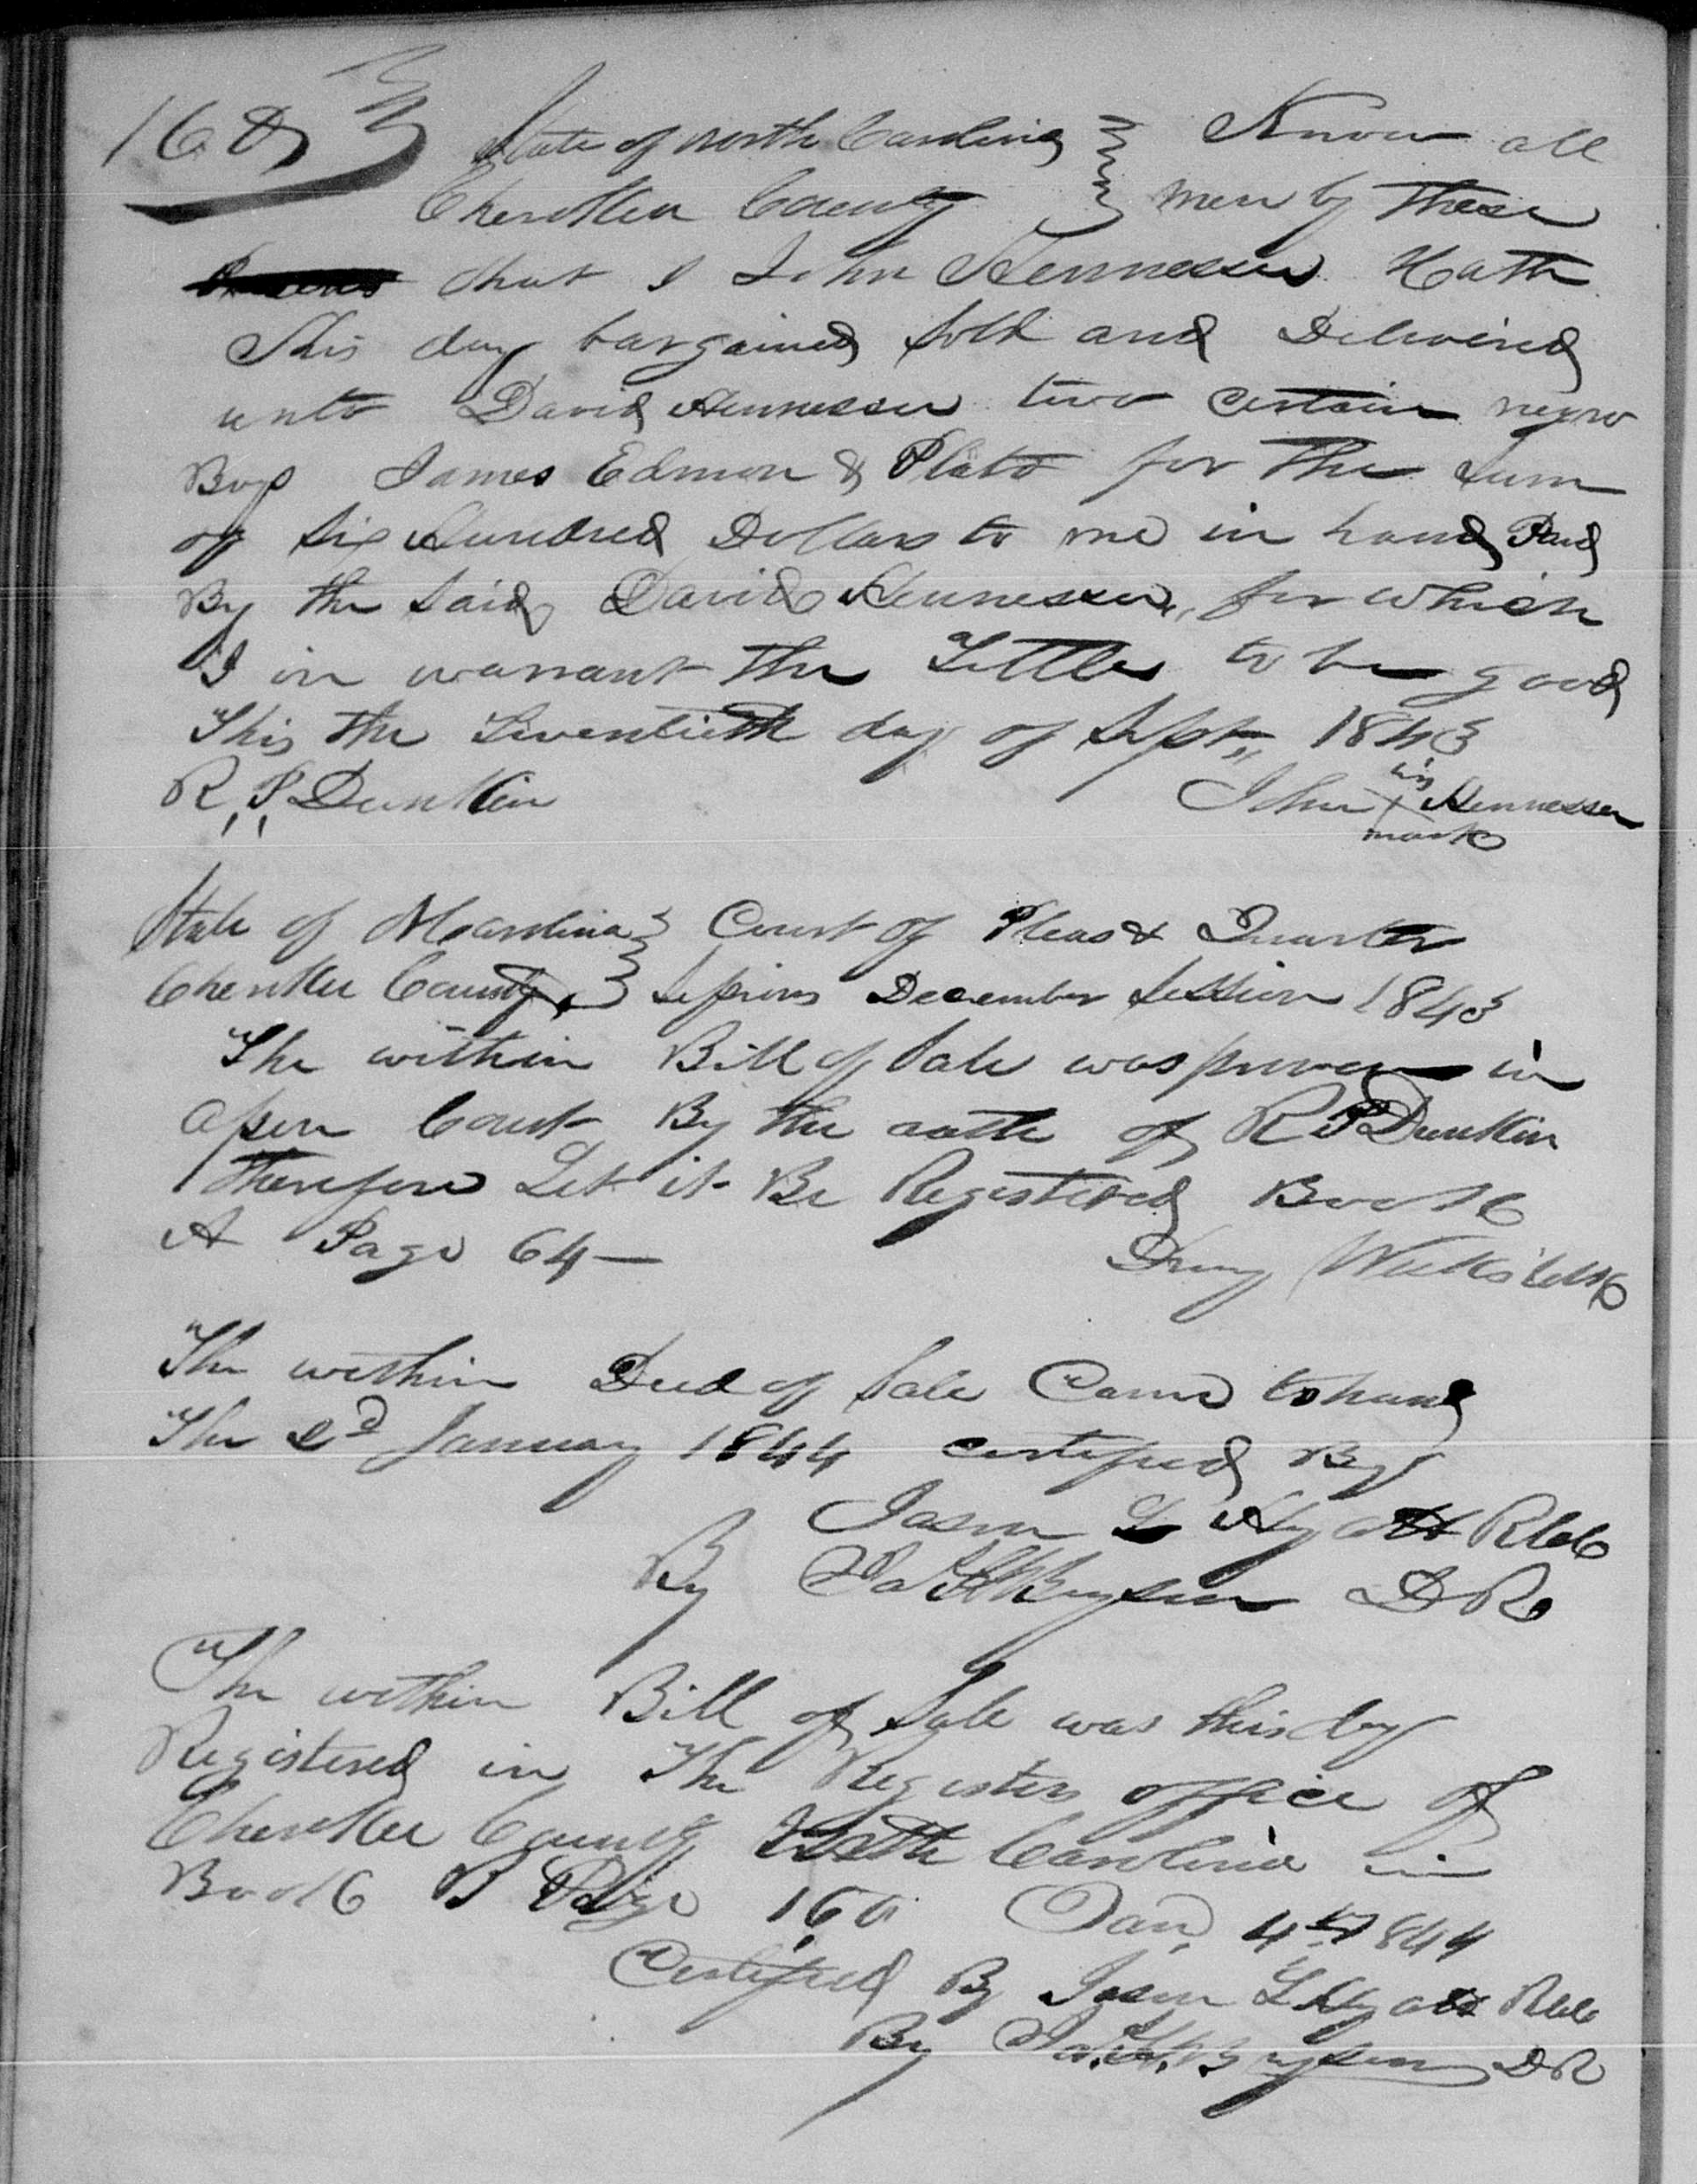 168
State of North Carolina } Know all
Cherokee County } men by These
that I John Hennessee Hath
This day bargained Sold and Delivered
unto David Hennessee two Certain negro
Boys James Edmon & Plato for The Sum
of Six Hundred Dollars to me in hand Paid
By the Said David Hennessee, for which
I in warrant the Tittle to be good
This the Twentieth day of Sept,, 1843
R,, P,, Dunkin John his X mark Hennessee
State of NCarolina } Court of Pleas & Quarter
Cherokee County } Sessions December Session 1843
The within Bill of Sale was proven in
open Court By the oath of R P Dunkin
Therefore Let it Be Registered Book
A Page 64— Drury Weeks Clk
The within Deed of Sale Came to hand
The 2d January 1844 certified By
Jason L Hyatt R
By Bryson DR
The within Bill of Sale was this day
Registered in The Registers office of
Cherokee County North Carolina in
Book B Page Jan, 4th 1844
Certified By Jason L Hyatt R
By Bryson DR